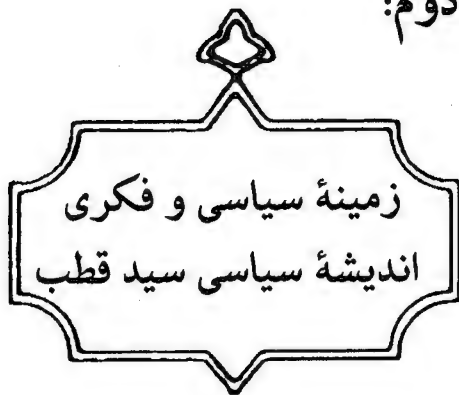 دوم:
زمینهٔ سیاسی و فکری
اندیشهٔ سیاسی سید قطب